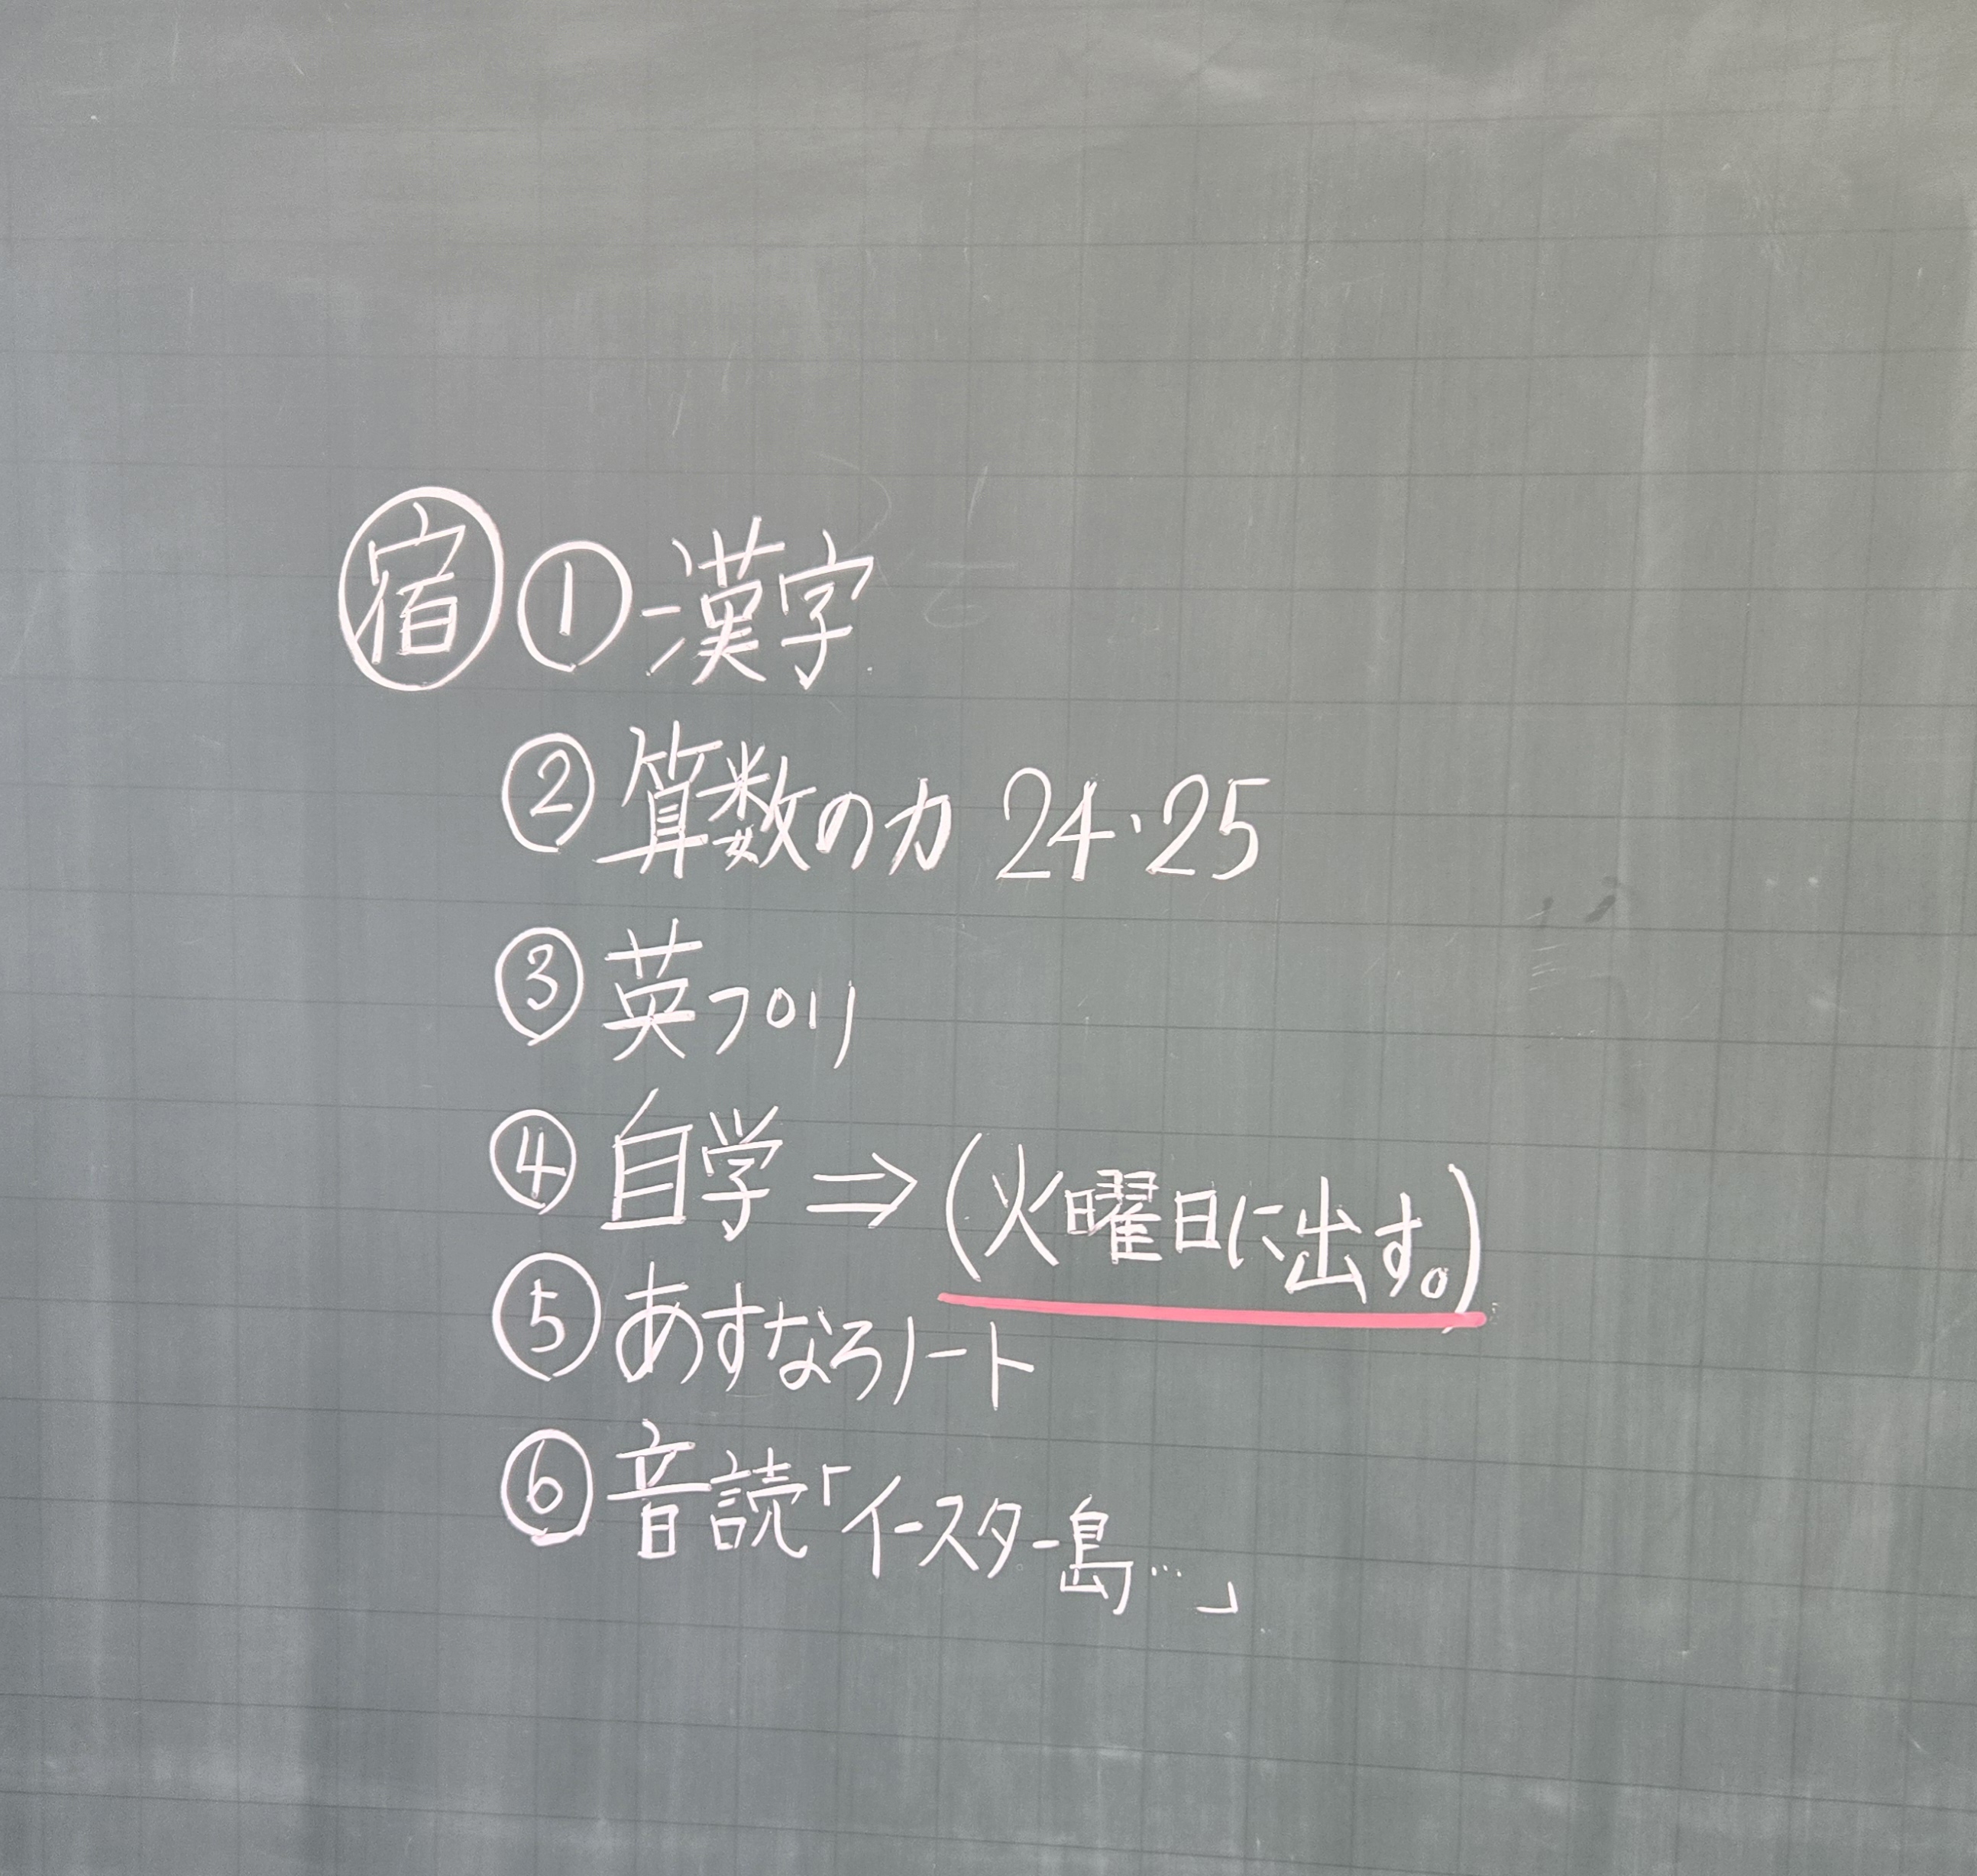 宿 ①漢字
②算数の力 24・25
③英フロリ
④自学⇒(火曜日に出す。)
⑤あすなろノート
⑥音読「イースター島…」